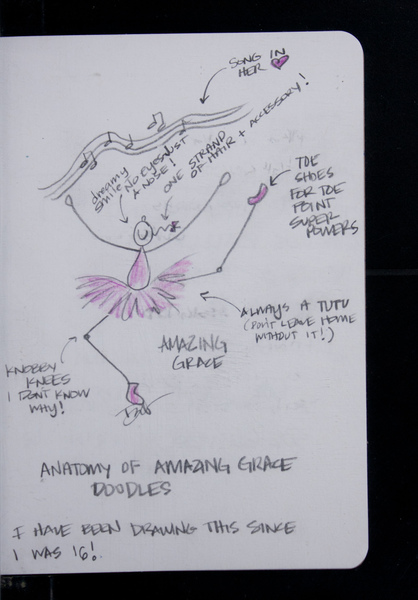 SONG IN
HER
dreamy
smile
NO EYES JUST
A NOSE!
ONE STRAND
OF HAIR + ACCESSORY!
TOE
SHOES
FOR TOE
POINT
SUPER
POWERS
ALWAYS A TUTU
(DON'T LEAVE HOME
WITHOUT IT!)
AMAZING
GRACE
KNOBBY
KNEES
I DON'T KNOW
WHY!
ANATOMY OF AMAZING GRACE
DOODLES
I HAVE BEEN DRAWING THIS SINCE
I WAS 16!